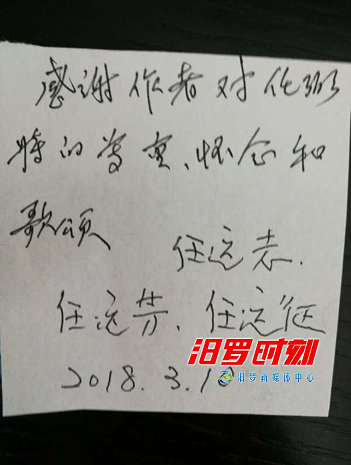 感谢作者对任弼
時的尊重、怀念和
歌颂 任远志.
任远芳、任远征
汨罗时刻
汨罗新媒体中心
2018.3.10